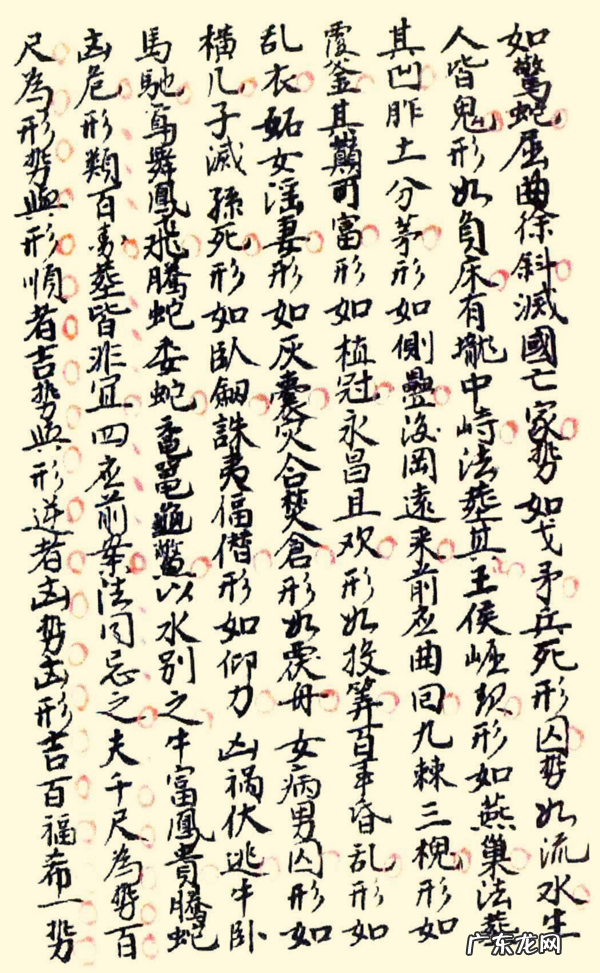 如驚蛇屈曲徐斜滅國亡家势如戈矛兵死形囚势如流水生
人皆鬼形如負床有壠中峙法葬其王侯形如燕巢法葬
其凹胙土分茅形如側罍後岡遠来前应曲回九棘三槐形如
覆釜其巔可富形如植冠永昌且欢形如投筭百事昏乱形如
乱衣妬女淫妻形如灰囊灾合焚倉形如覆舟女病男囚形如
横几子滅孫死形如臥劒誅夷偪僣形如仰刀凶禍伏逃牛卧
馬馳鸞舞鳳飛騰蛇委蛇黿鼉龜鱉以水别之牛富鳳貴騰蛇
凶危形類百葬皆非宜四应前案法同忌之夫千尺為势百
尺為形势與形順者吉势與形逆者凶势凶形吉百福希一势
广东龙网